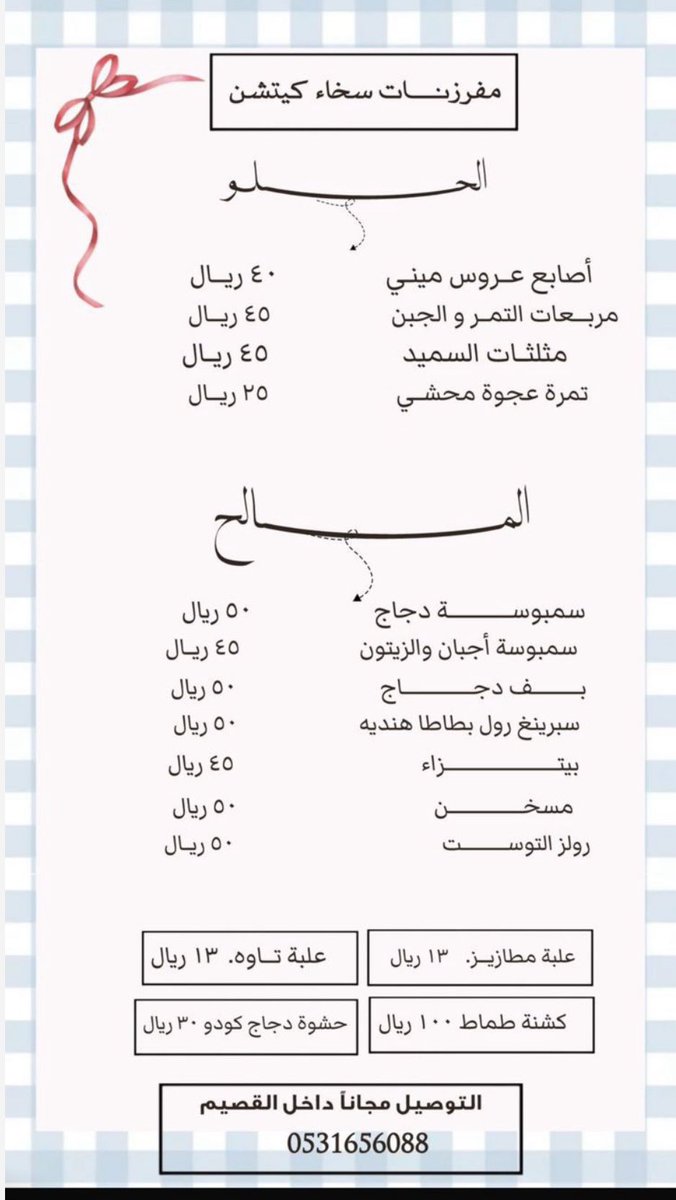 مفرزنات سخاء كيتشن
الحلو
أصابع عروس ميني ٤٠ ريال
مربعات التمر و الجبن ٤٥ ريال
مثلثات السميد ٤٥ ريال
تمرة عجوة محشي ٢٥ ريال
المالح
سمبوسة دجاج ٥٠ ريال
سمبوسة أجبان والزيتون ٤٥ ريال
بف دجاج ٥٠ ريال
سبرينغ رول بطاطا هنديه ٥٠ ريال
بيتزاء ٤٥ ريال
مسخن ٥٠ ريال
رولز التوست ٥٠ ريال
علبة مطازيز. ١٣ ريال
علبة تاوه. ١٣ ريال
كشنة طماط ١٠٠ ريال
حشوة دجاج كودو ٣٠ ريال
التوصيل مجاناً داخل القصيم
0531656088